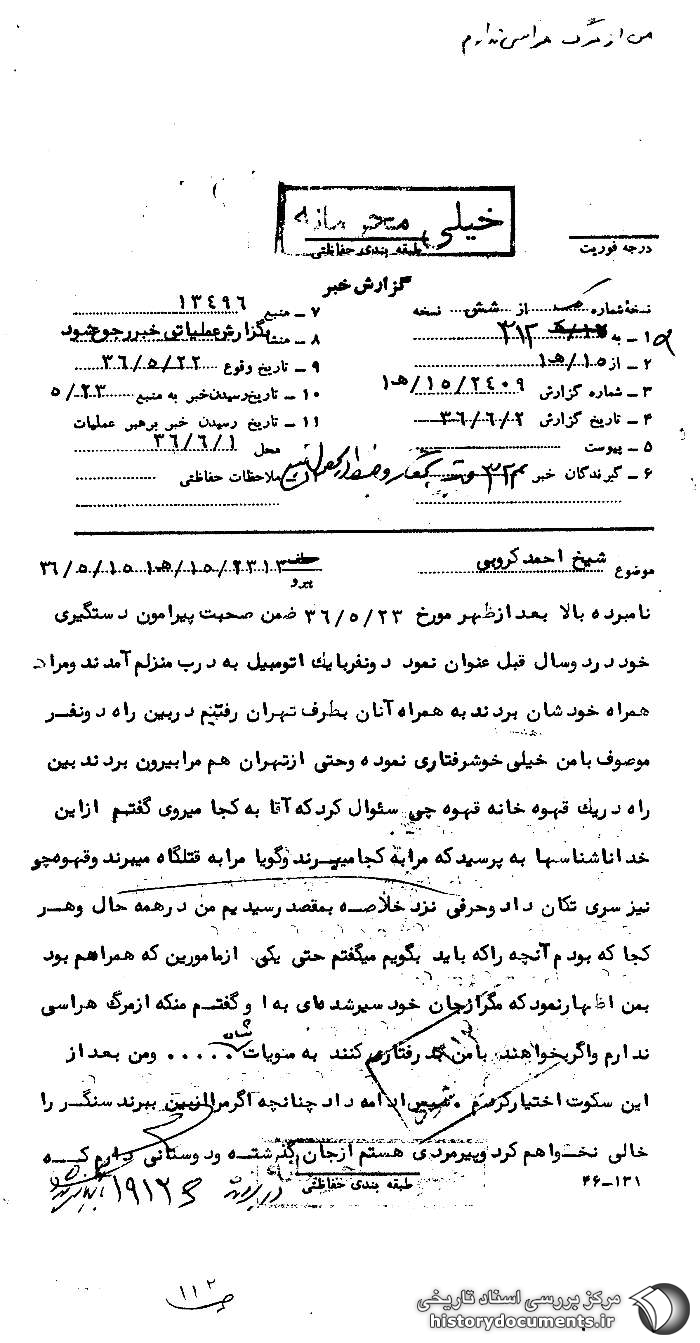 من از مرگ هراسی ندارم
خیلی محرمانه
طبقه بندی حفاظتی
درجه فوریت
گزارش خبر
نسخهٔ شماره از شش نسخه
۱ـ به ۳۱۲
۲ـ از ۱۵/هـ۱
۳ـ شماره گزارش ۲۴۰۹/۱۵/هـ۱
۴ـ تاریخ گزارش ۳۶/۶/۲
۵ـ پیوست
۶ـ گیرندگان خبر
۷ـ منبع ۱۳۴۹۶
۸ـ منشأ بگزارش عملیاتی خبر رجوع شود
۹ـ تاریخ وقوع ۳۶/۵/۲۲
۱۰ـ تاریخ رسیدن خبر به منبع ۵/۲۳
۱۱ـ تاریخ رسیدن خبر برهبر عملیات
محل ۳۶/۶/۱
ملاحظات حفاظتی
موضوع شیخ احمد کروبی
پیرو ۲۳۱۳/۱۵/هـ۱ ۳۶/۵/۱۵
نامبرده بالا بعد ازظهر مورخ ۳۶/۵/۲۳ ضمن صحبت پیرامون دستگیری
خود در دوسال قبل عنوان نمود دونفر بایك اتومبیل به درب منزلم آمدند ومرا
همراه خودشان بردند به همراه آنان بطرف تهران رفتیم دربین راه دونفر
موصوف بامن خیلی خوشرفتاری نموده وحتی ازتهران هم مرا بیرون بردند بین
راه در یك قهوه خانه قهوه چی سئوال کرد که آقا به کجا میروی گفتم ازاین
خدا ناشناسها به پرسید که مرا به کجا میبرند وگویا مرا به قتلگاه میبرند وقهوه چی
نیز سری تکان داد وحرفی نزد خلاصه بمقصد رسیدیم من درهمه حال وهر
کجا که بودم آنچه را که باید بگویم میگفتم حتی یکی ازمامورین که همراهم بود
بمن اظهار نمود که مگر ازجان خود سیر شده ای به او گفتم منکه ازمرگ هراسی
ندارم واگر بخواهند بامن بد رفتاری کنند به منویات شان ..... ومن بعد از
این سکوت اختیار کردم . شیخ ادامه داد چنانچه اگر مرا ازبین ببرند سنگر را
خالی نخواهم کرد وپیرمردی هستم ازجان گذشته ودوستانی دارم که
طبقه بندی حفاظتی
۴۶-۱۳۱
۱۹۱۲
۱۱۲
مرکز بررسی اسناد تاریخی
historydocuments.ir